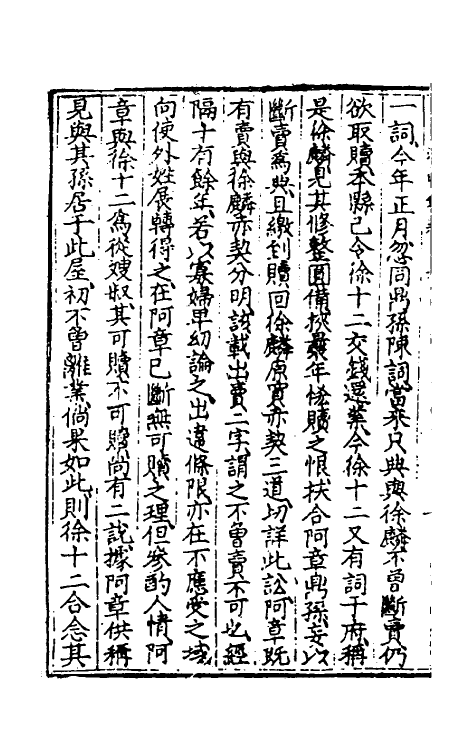 一詞今年正月忽同鼎孫陳詞當來只典與徐麟不曾斷賣仍
欲取贖本縣已令徐十二交錢還業今徐十二又有詞于府稱
是徐麟見其修整圓備挾曩年恡贖之恨扶合阿章鼎孫妄以
斷賣爲典且繳到贖回徐麟原買赤契三道切詳此訟阿章既
有賣與徐麟赤契分明該載出賣二字謂之不曾賣不可也經
隔十有餘年若以寡婦卑幼論之出違條限亦在不應受之域
向使外姓展轉得之在阿章已斷無可贖之理但參酌人情阿
章與徐十二爲從嫂叔其可贖不可贖尚有二說據阿章供稱
見與其孫居于此屋初不曾離業倘果如此則徐十二合念其